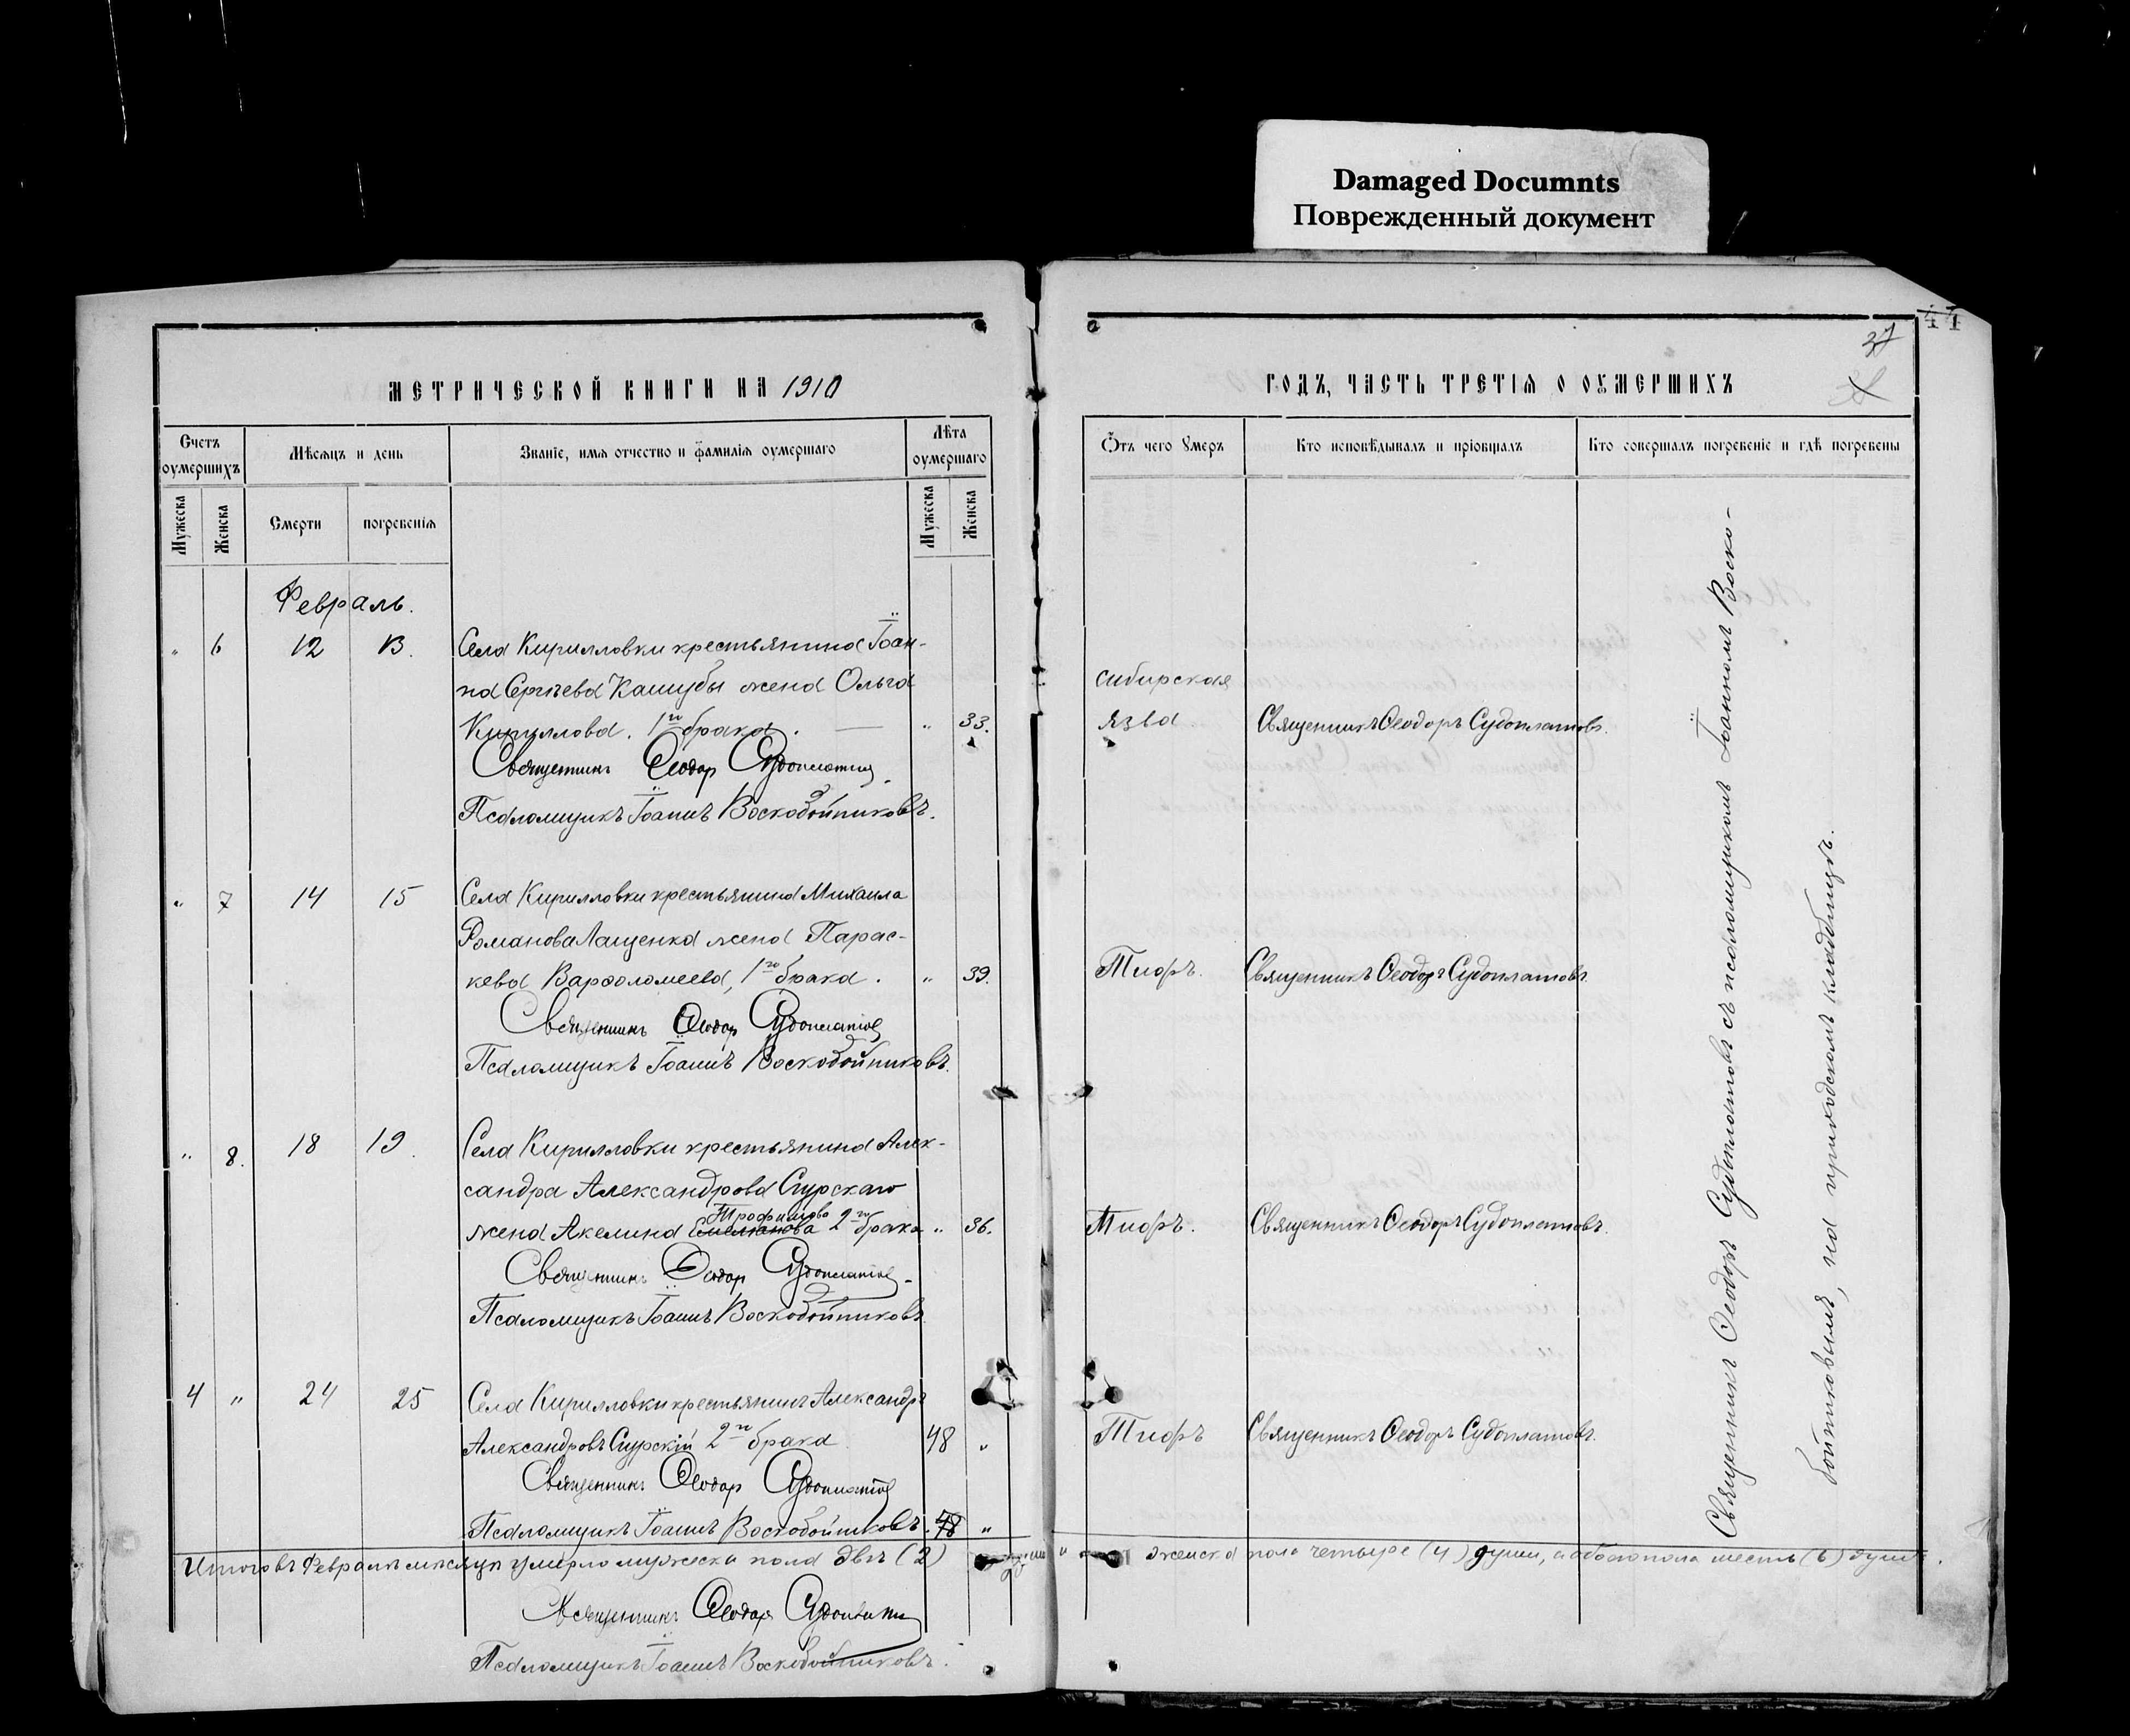 Damaged Documnts
Поврежденный документ
44
37
МЕТРИЧЕСКОЙ КНИГИ НА 1910
ГОДЪ, ЧАСТЬ ТРЕТІЯ О ОУМЕРШИХЪ
Счетъ оумершихъ
Мѣсяцъ и день
Званіе, имя отчество и фамилія оумершаго
Лѣта оумершаго
Отъ чего умеръ
Кто исповѣдывалъ и пріобщалъ
Кто совершалъ погребеніе и гдѣ погребены
Мужеска
Женска
Смерти
погребенія
Мужеска
Женска
Февраль.
" 6 12 13. Села Кирилловки крестьянина Іоан-
на Сергѣева Кашубы жена Ольга
Кириллова. 1го брака. " 33.
сибирская
язва Священникъ Ѳеодоръ Судоплатовъ.
Священникъ Ѳеодор Судоплатов
Псаломщикъ Іоаннъ Воскобойниковъ.
" 7 14 15 Села Кирилловки крестьянина Михаила
Романова Лащенка жена Парас-
кева Варѳоломеева, 1го брака. " 39. Тифъ. Священникъ Ѳеодоръ Судоплатовъ.
Священникъ Ѳеодор Судоплатов
Псаломщикъ Іоаннъ Воскобойниковъ.
" 8. 18 19. Села Кирилловки крестьянина Алек-
сандра Александрова Сурскаго
Трофимова
жена Акелина Емельянова 2го брака " 36. Тифъ. Священникъ Ѳеодоръ Судоплатовъ.
Священникъ Ѳеодор Судоплатов
Псаломщикъ Іоаннъ Воскобойниковъ.
4 " 24 25 Села Кирилловки крестьянинъ Александръ
Александровъ Сурскій 2го брака 48 " Тифъ Священникъ Ѳеодоръ Судоплатовъ.
Священникъ Ѳеодор Судоплатов
Псаломщикъ Іоаннъ Воскобойниковъ. 48 "
Священникъ Ѳеодоръ Судоплатовъ съ псаломщикомъ Іоанномъ Воско-
бойниковымъ, на приходскомъ кладбищѣ.
Итого въ Февралѣ мѣсяцѣ умерло мужеска пола двѣ (2) женска пола четыре (4) души, а обоего пола шесть (6) душъ.
Священникъ Ѳеодор Судоплатов
Псаломщикъ Іоаннъ Воскобойниковъ.